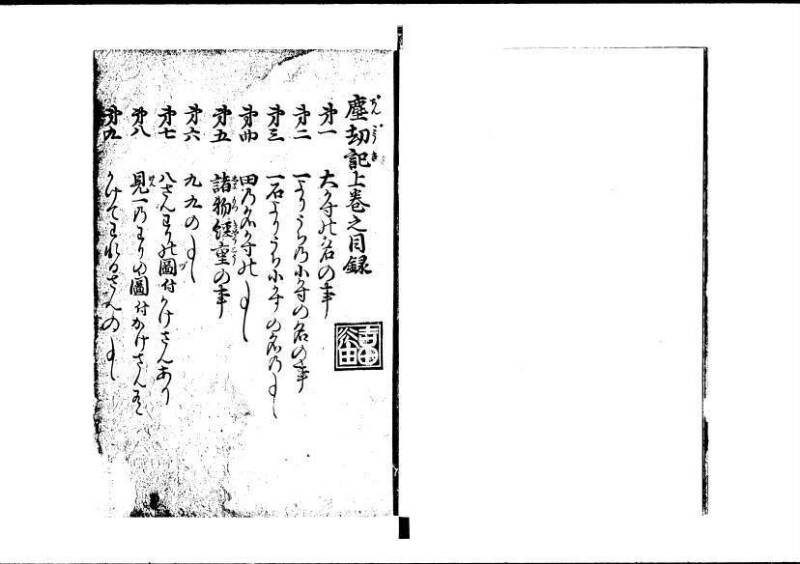 塵劫記上巻之目録
ぢんかうき
第一 大かずの名の事
第二 一よりうちの小かずの名の事
第三 一石よりうち小かずの名の事
第四 田の名かずの事
第五 諸物軽重の事
第六 九九の事
第七 八さんわりの圖付かけさんあり
第八 見一のわりの圖付かけさん
第九 かけてわれるさんの事